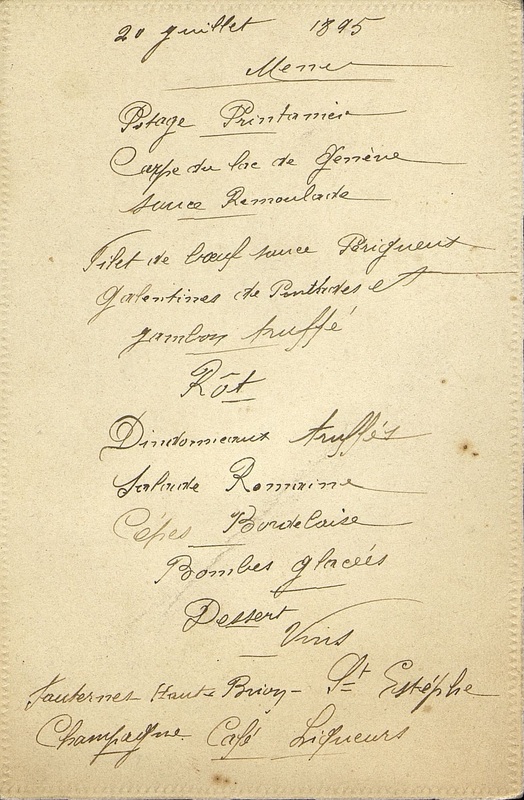 20 Juillet 1895
Menu
Potage Printanier
Carpe du lac de Genève
sauce Remoulade
Filet de bœuf sauce Périgueux
Galentines de Pintades et
jambon truffé
Rôt
Dindonneaux truffés
Salade Romaine
Cépes Bordelaise
Bombes glacées
Dessert
Vins
Sauternes - Haut-Brion - St Estéphe
Champagne Café Liqueurs